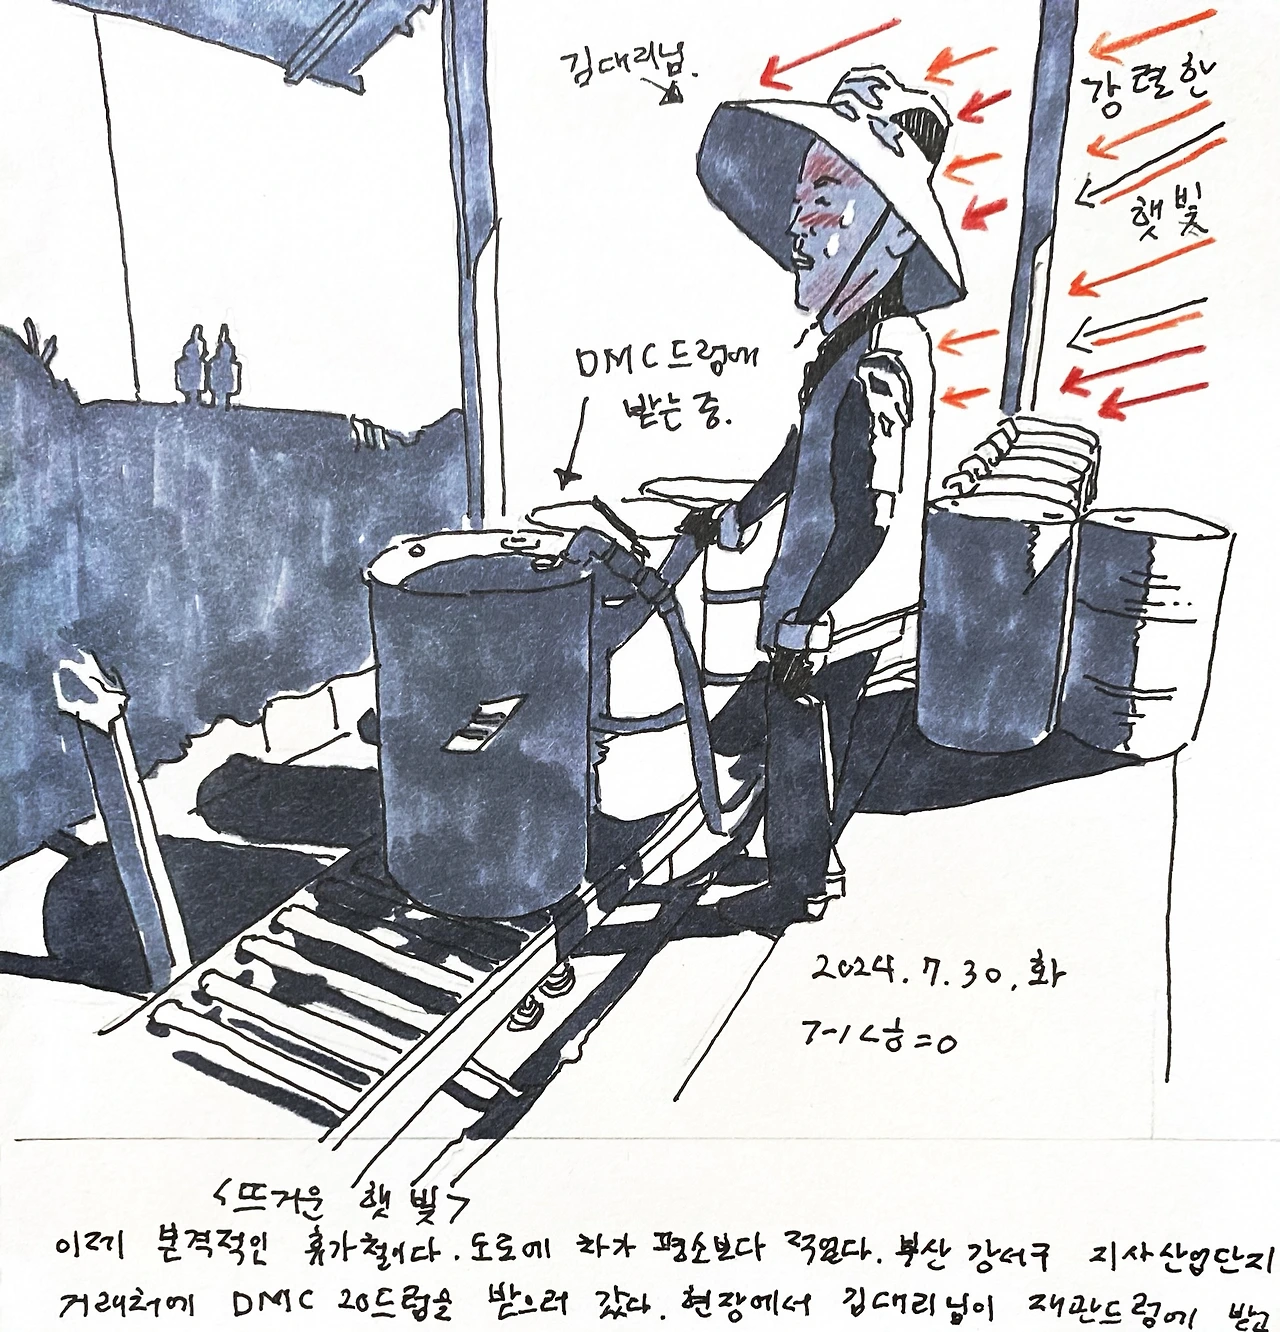 김대리님.
강렬한
햇빛
DMC드럼에
받는 중.
2024. 7. 30. 화
<뜨거운 햇빛>
이제 본격적인 휴가철이다. 도로에 차가 평소보다 적었다. 부산 강서구 지사산업단지
거래처에 DMC 20드럼을 받으러 갔다. 현장에서 김대리님이 재관드럼에 받고